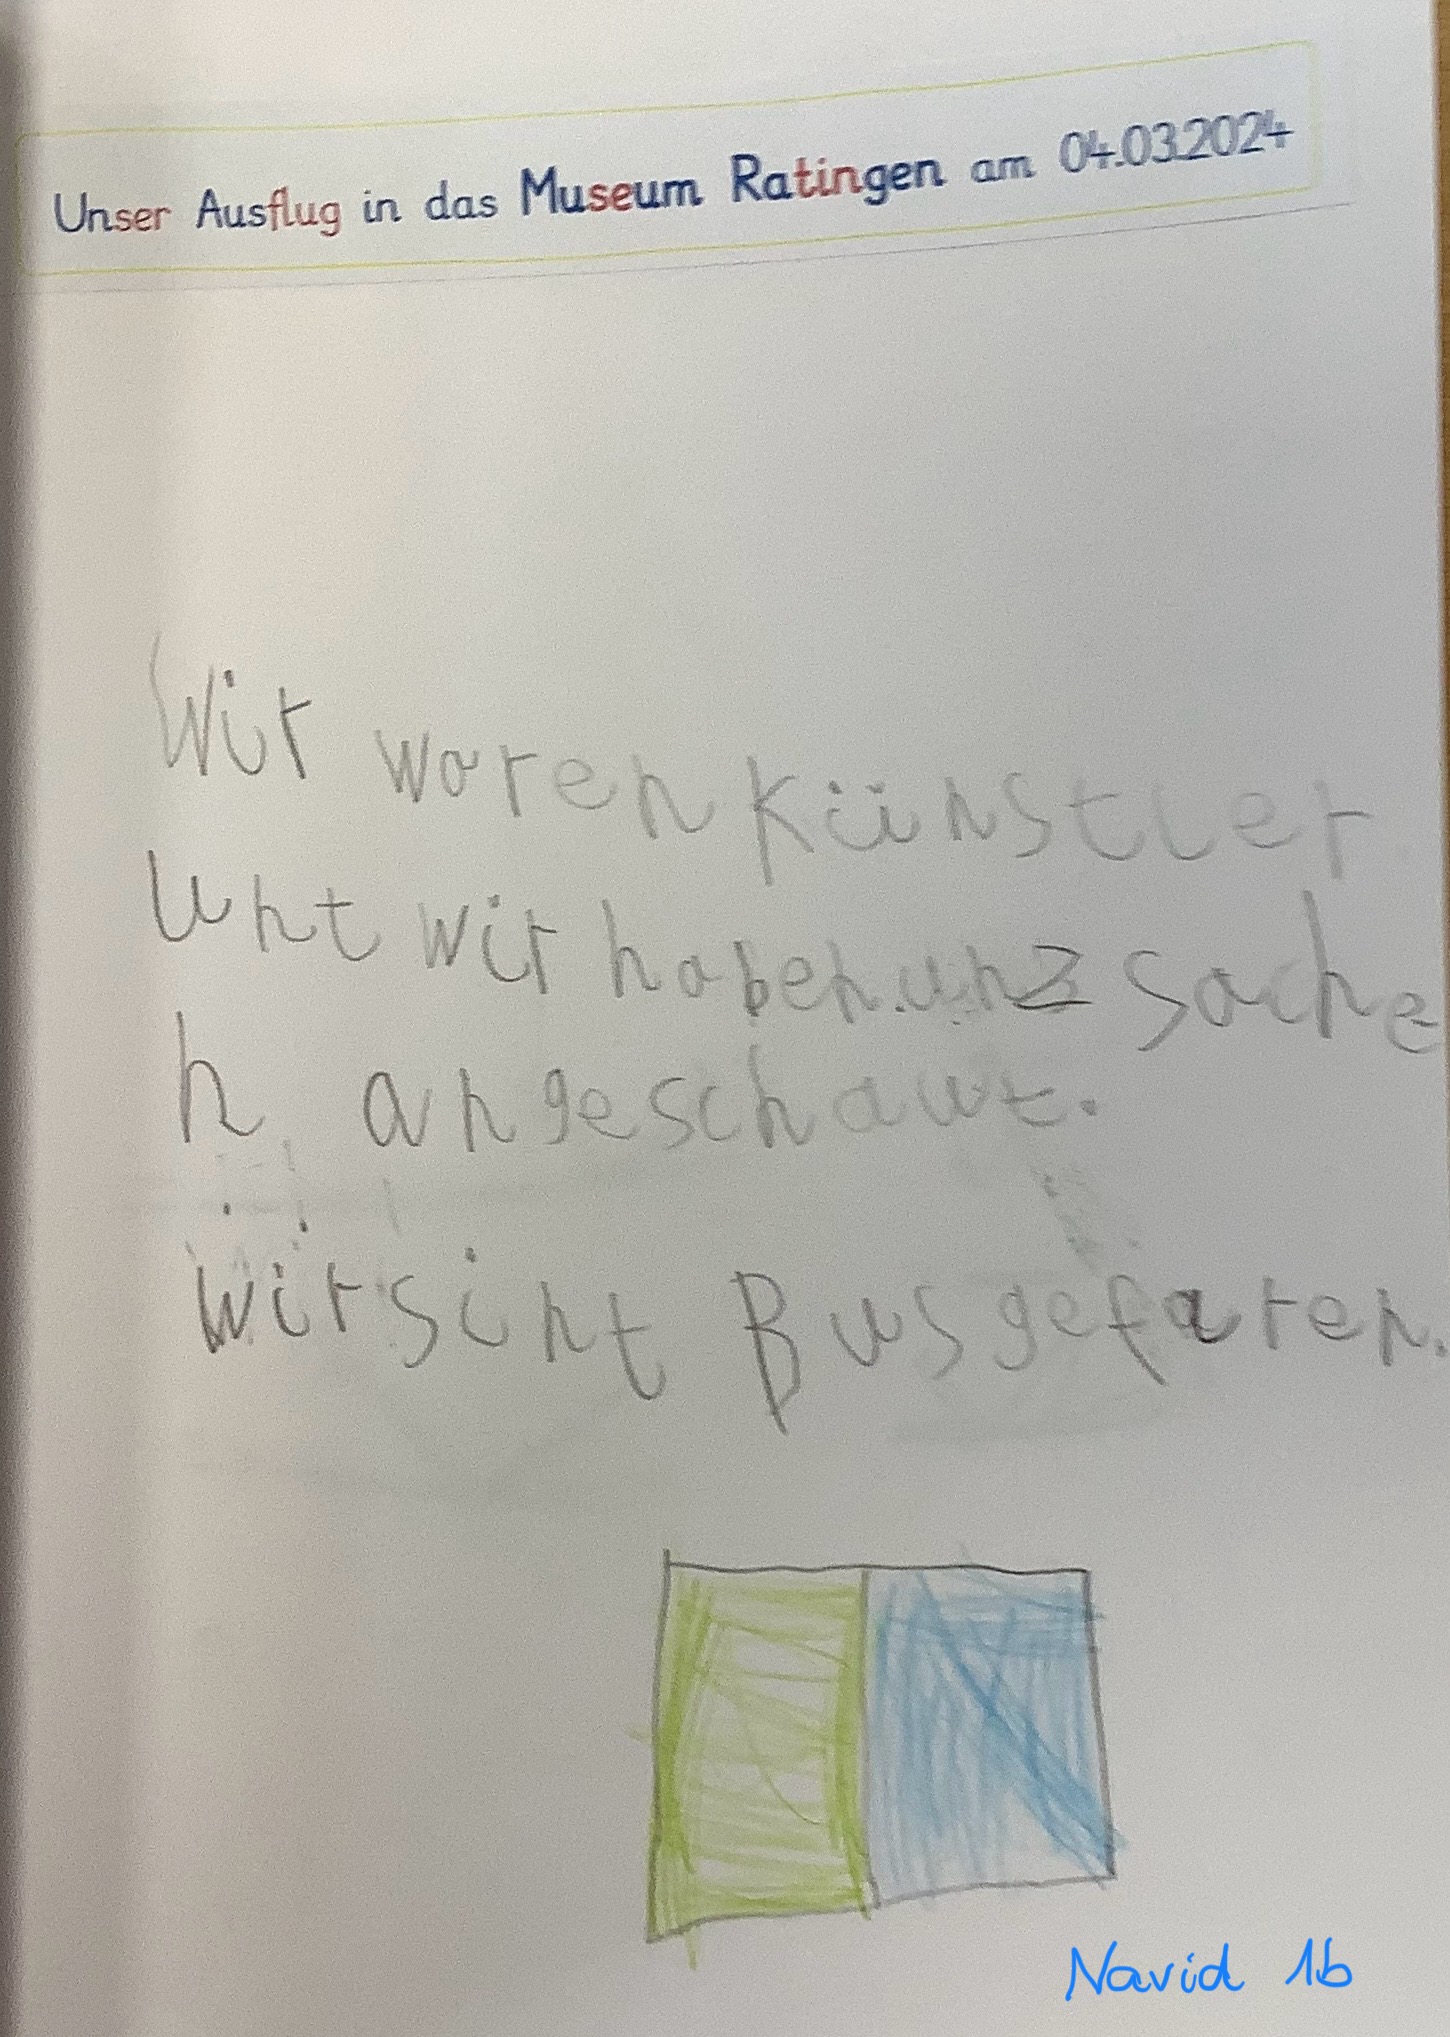 Unser Ausflug in das Museum Ratingen am 04.03.2024
Wir waren Künstler
unt wir haben unz sache
n angeschaut.
wir sint Bus gefaren.
Navid 1b